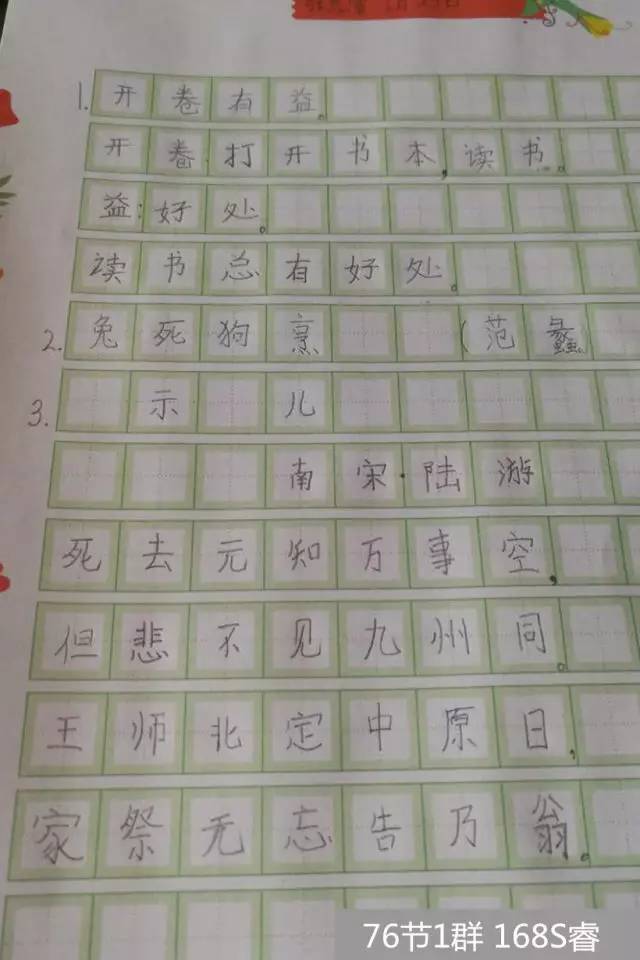 1. 开卷有益。
开卷打开书本,读书。
益:好处。
读书总有好处。
2. 兔死狗烹 (范蠡
3. 示儿
南宋·陆游
死去元知万事空,
但悲不见九州同。
王师北定中原日,
家祭无忘告乃翁。
76节1群 168S睿